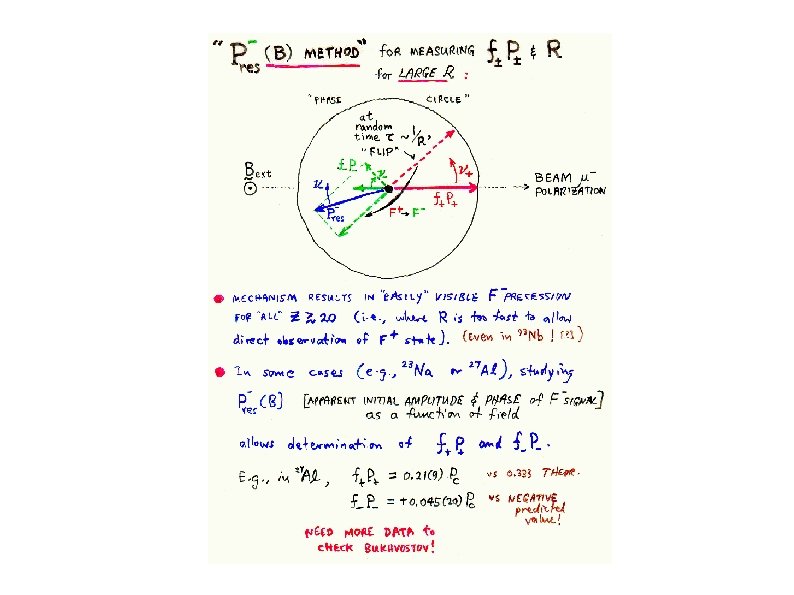 "P⁻res (B) METHOD" for MEASURING f± P± & R
for LARGE R :
"PHASE CIRCLE"
at
random
time τ ~ 1/R,
"FLIP"
f_P_
ν_
ν₊
B ext
ν_
P⁻res
F⁺→F⁻
f₊P₊
BEAM μ⁻
POLARIZATION
● MECHANISM RESULTS IN "EASILY" VISIBLE F⁻ PRECESSION
FOR "ALL" Z ≳ 20 (i.e., where R is too fast to allow
direct observation of F⁺ state). (Even in ⁹³Nb !
● In some cases (e.g., ²³Na or ²⁷Al), studying
P⁻res (B) [APPARENT INITIAL AMPLITUDE & PHASE of F⁻ SIGNAL]
as a function of field
allows determination of f₊P₊ and f_P_.
E.g., in ²⁷Al, f₊P₊ = 0.21(9) Pc vs 0.333 THEOR.
f_P_ = +0.045(20) Pc vs NEGATIVE
predicted
value!
NEED MORE DATA to
CHECK BUKHVOSTOV!